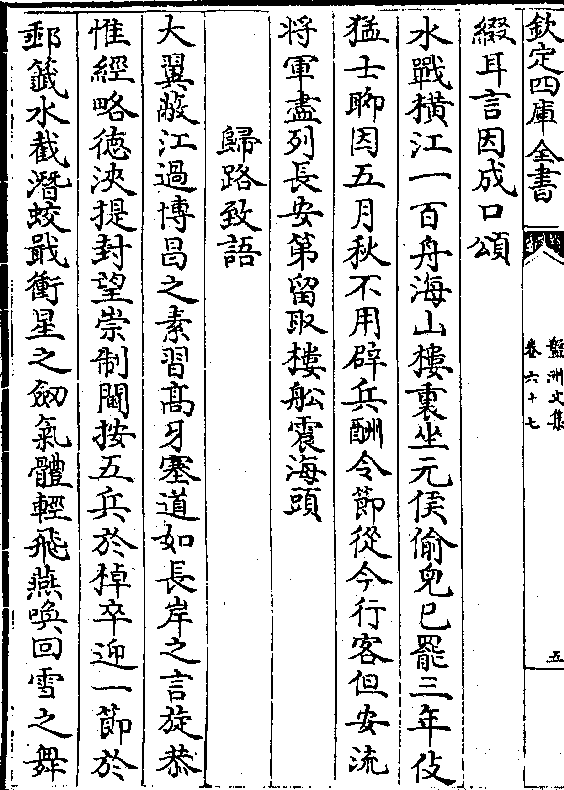 欽定四庫全書
盤洲文集
卷六十七
五
綴耳言因成口頌
水戰橫江一百舟海山樓裏坐元侯偷兒已罷三年伎
猛士聊因五月秋不用辟兵酬令節從今行客但安流
將軍盡列長安第留取樓船震海頭
歸路致語
大翼敵江過博昌之素習髙牙塞道如長岸之言旋恭
惟經略徳浹提封望崇制閫按五兵於棹卒迎一節於
郵籖水截潛蛟戢衝星之劒氣體輕飛燕喚回雪之舞